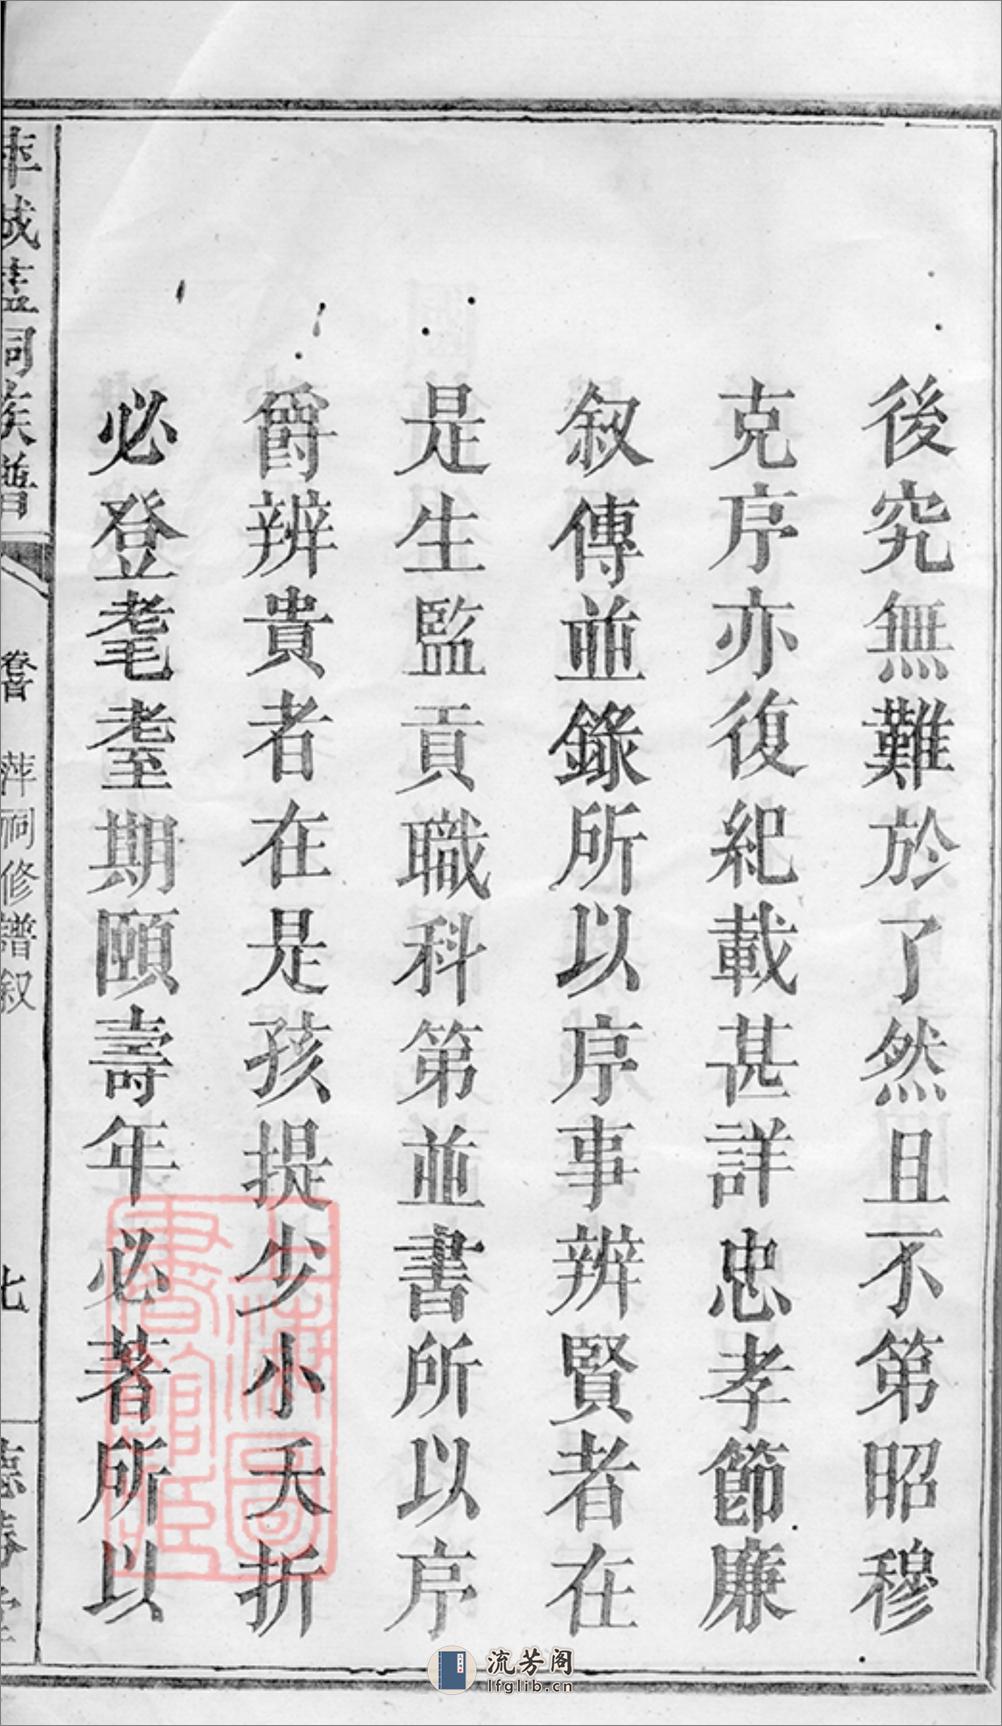 後究無難於了然且不第昭穆
克序亦復紀載甚詳忠孝節廉
敘傳並錄所以序事辨賢者在
是生監貢職科第並書所以序
爵辨貴者在是孩提少小夭折
必登耄耋期頤壽年必著所以
族譜
萍祠修譜叙
七
上海圖書館藏
流芳阁
lfglib.cn